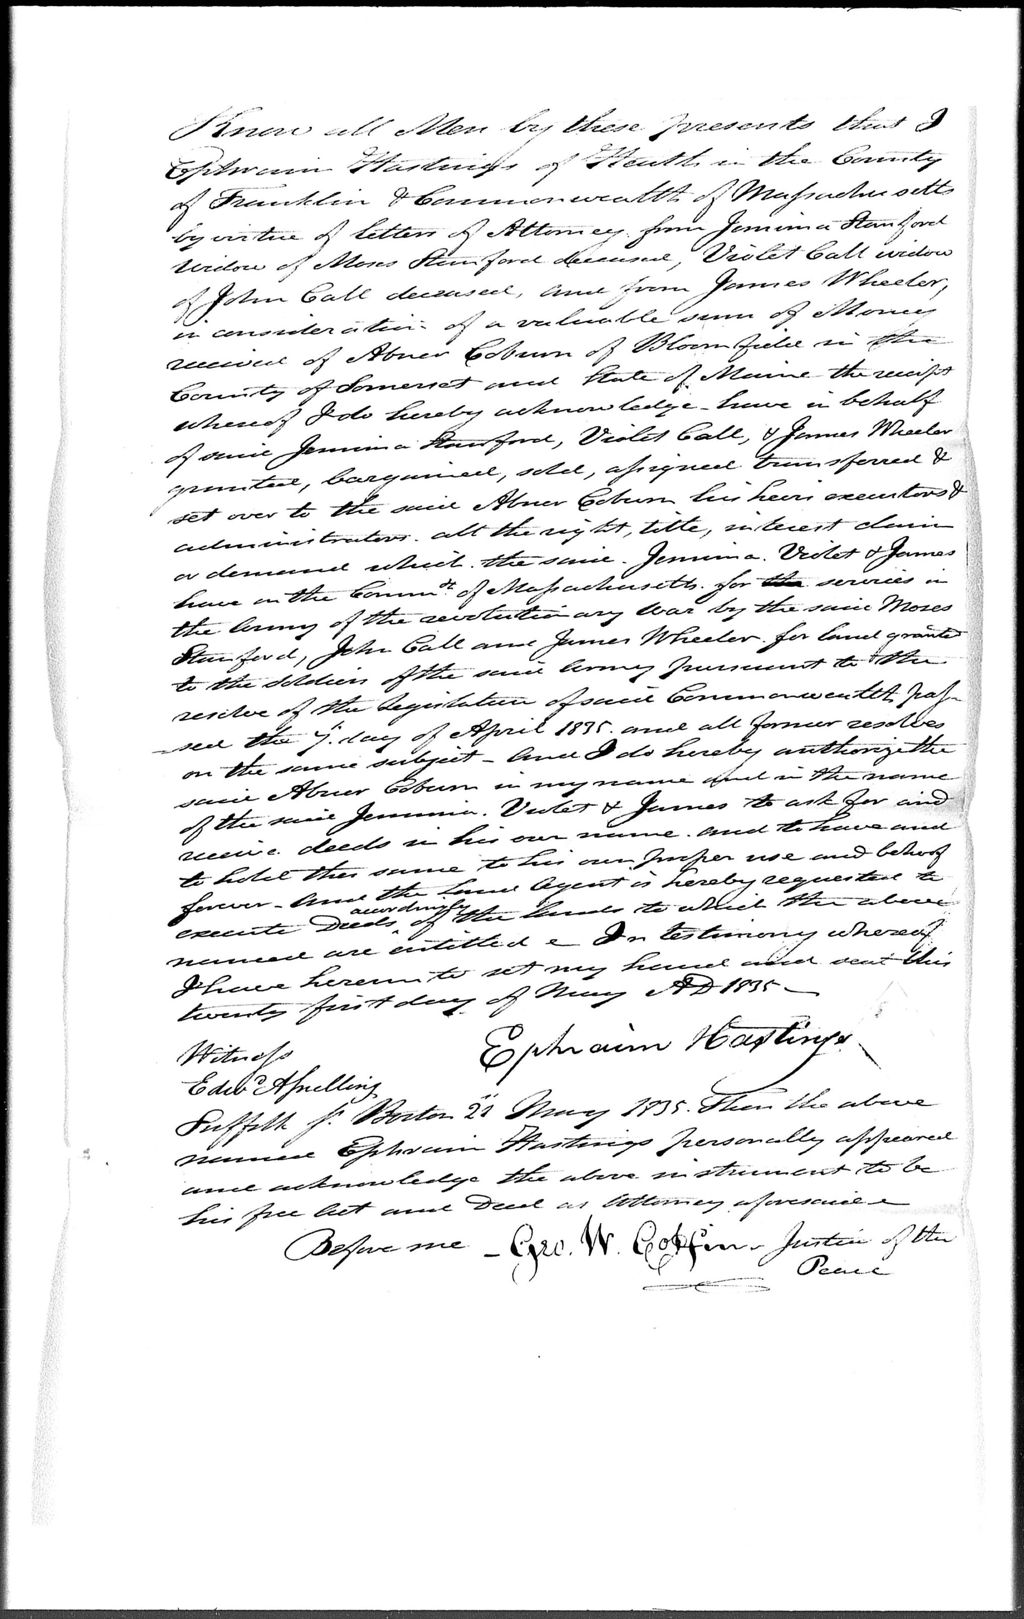 Know all Men by these presents that I
Ephraim Hastings of Heath in the County
of Franklin & Commonwealth of Massachusetts
by virtue of letters of Attorney from Jemima Stanford
widow of Moses Stanford deceased, Violet Call widow
of John Call deceased, and from James Wheeler,
in consideration of a valuable sum of Money
received of Abner Coburn of Bloomfield in the
County of Somerset and State of Maine the receipt
whereof I do hereby acknowledge - have in behalf
of said Jemima Stanford, Violet Call, & James Wheeler
granted, bargained, sold, assigned transferred &
set over to the said Abner Coburn his heirs executors &
administrators all the right, title, interest claim
or demand which the said Jemima Violet & James
have on the Commth of Massachusetts for the services in
the Army of the revolutionary War by the said Moses
Stanford, John Call and James Wheeler for land granted
to the soldiers of the said Army pursuant to the
resolve of the legislature of said Commonwealth pas-
sed the 7. day of April 1835 and all former resolves
on the same subject - And I do hereby authorize the
said Abner Coburn in my name and in the name
of the said Jemima, Violet & James to ask for and
receive deeds in his own name and to have and
to hold the same to his own proper use and behoof
forever - And the Land Agent is hereby requested to
execute Deeds accordingly of the lands to which the above
named are entitled - In testimony whereof
I have hereunto set my hand and seal this
twenty first day of May AD 1835 -
Ephraim Hastings
Witness
Edwd A Snelling
Suffolk ss. Boston 21 May 1835. Then the above
named Ephraim Hastings personally appeared
and acknowledge the above instrument to be
his free Act and Deed as Attorney aforesaid -
Before me - Geo. W. Coffin - Justice of the
Peace